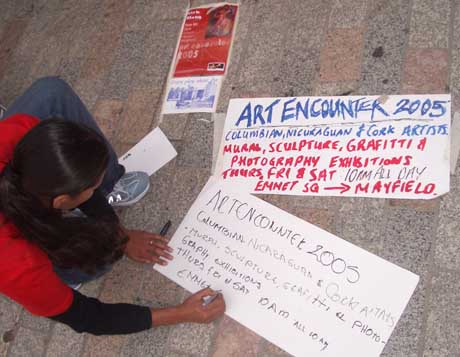 2005
ART ENCOUNTER 2005
COLUMBIAN, NICURAGUAN & CORK ARTISTS
MURAL, SCULPTURE, GRAFITTI &
PHOTOGRAPHY EXHIBITIONS
THURS, FRI & SAT 10AM ALL DAY
EMMET SQ → MAYFIELD.
ART ENCOUNTER 2005
COLUMBIAN NICARAGUAN & CORK ARTISTS
- MURAL, SCULPTURE, GRAFITTI, & PHOTO-
GRAPHY, EXHIBITIONS
THURS FRI & SAT 10 AM ALL DAY
EMME